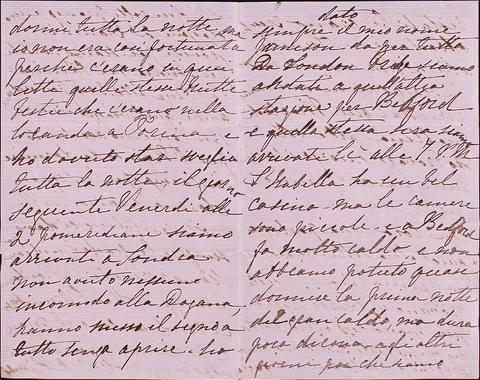 dormi tutta la notte, ma
io non era così fortunata
perchè c'erano in quei
letti quelle stesse brutte
bestie che c'erano nella
locanda a e
ho dovuto star sveglia
tutta la notte. il giorno
seguente Venerdì alle
2 pomeridiane siamo
arrivati a Londra
non avuto nessuno
incomodo alla Dogana,
hanno messo il segno a
tutto senza aprire. ho
dato
sempre il mio nome
da per tutto
Da London siamo
andati a quell'altra
stazione per Bedford
e quella stessa sera siamo
arrivati lì alle 7
Isabella ha un bel
casino ma le camere
sono piccole. e a Bedford
fa molto caldo e non
abbiamo potuto quasi
dormire la prima notte
del gran caldo, ma dura
poca agli altri
giorni poi che siamo